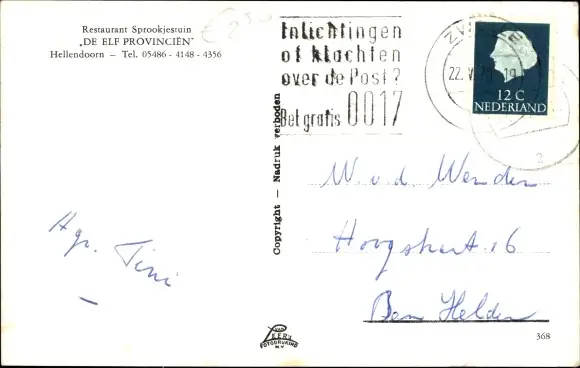 Restaurant Sprookjestuin
„DE ELF PROVINCIËN"
Hellendoorn — Tel. 05486 - 4148 - 4356
€ 2 50
Inlichtingen
of klachten
over de Post?
Bel gratis 0017
22. V
19
12 C
NEDERLAND
2
Copyright — Nadruk verboden
W. v. d. Wenden
Hoogstraat 16
Den Helder
Hgr. Tini
KERK
FOTODRUKING
N.V.
368